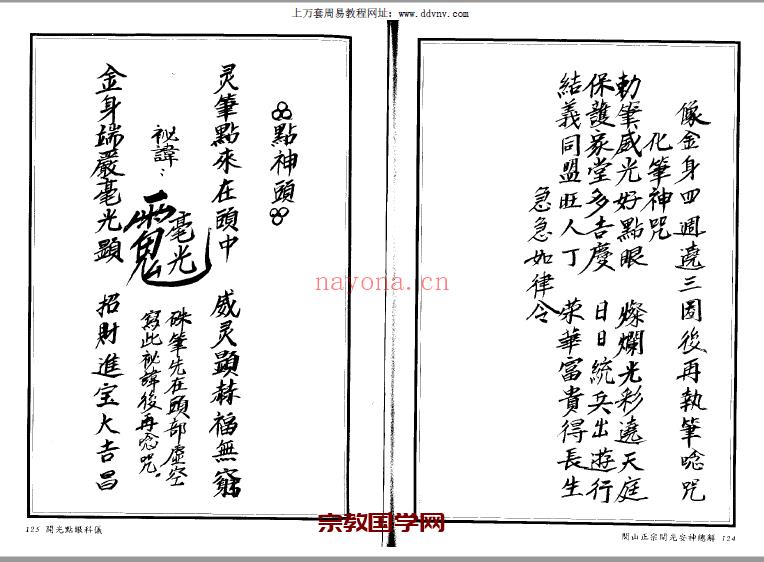 上万套周易教程网址：www.ddvnv.com
像金身四週遶三圈後再執筆唸咒
化筆神咒
勅筆威光好點眼 燦爛光彩遶天庭
保護家堂多吉慶 日日統兵出遊行
結義同盟旺人丁 荣華富貴得長生
急急如律令
閭山正宗開光安神總解 124
點神頭
灵筆點來在頭中 威灵顯赫福無窮
祕諱：
毫光
硃筆先在頭部虛空
寫此祕諱後再唸咒。
金身端嚴毫光顯 招財進宝大吉昌
125 開光點眼科儀
nayona.cn
宗教国学网